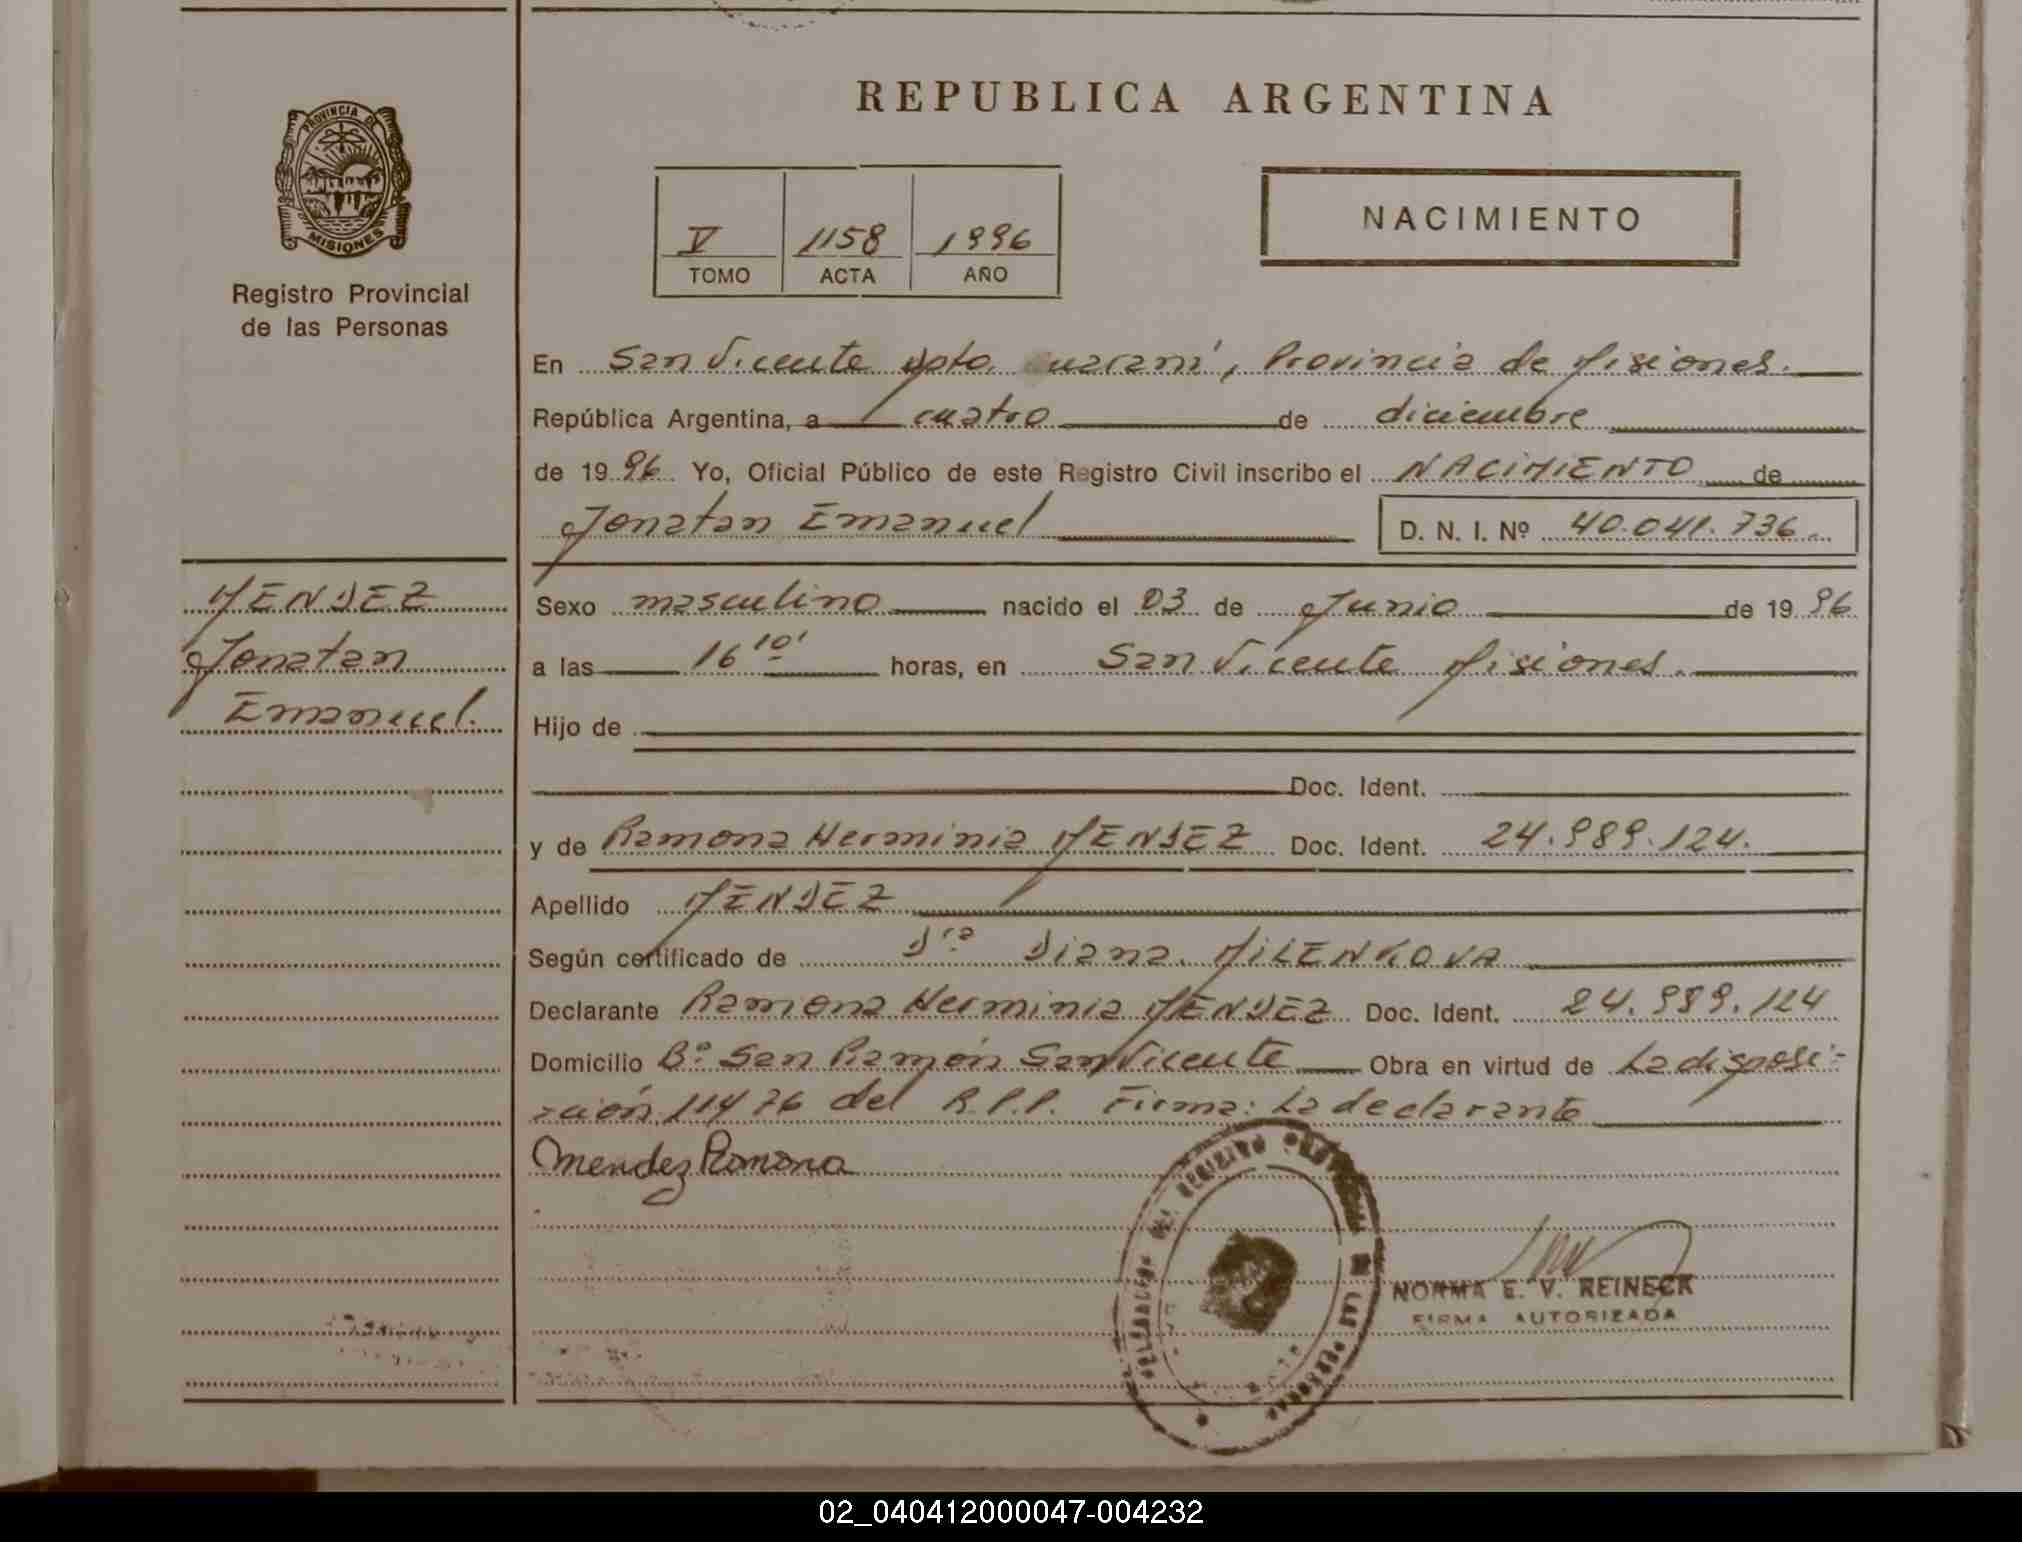 REPUBLICA ARGENTINA
PROVINCIA DE
MISIONES
Registro Provincial
de las Personas
V 1158 1996
TOMO ACTA AÑO
NACIMIENTO
En San Vicente Dpto. Guaraní, Provincia de Misiones.
República Argentina, a cuatro de diciembre
de 19 96. Yo, Oficial Público de este Registro Civil inscribo el NACIMIENTO de
Jonatan Emanuel D. N. I. Nº 40.041.736.
MENDEZ
Jonatan
Emanuel.
Sexo masculino nacido el 03 de Junio de 19 96
a las 16 10' horas, en San Vicente Misiones.
Hijo de
Doc. Ident.
y de Ramona Herminia MENDEZ Doc. Ident. 24.989.124.
Apellido MENDEZ
Según certificado de Dra Diana MILENKOVA
Declarante Ramona Herminia MENDEZ Doc. Ident. 24.989.124
Domicilio Bº San Ramón San Vicente Obra en virtud de La disposi-
del R.P.P. Firma: La declarante
Mendez Ramona
DELEGACION DEL REGISTRO PROVINCIAL DE LAS PERSONAS
NORMA E. V. REINECK
FIRMA AUTORIZADA
02_040412000047-004232